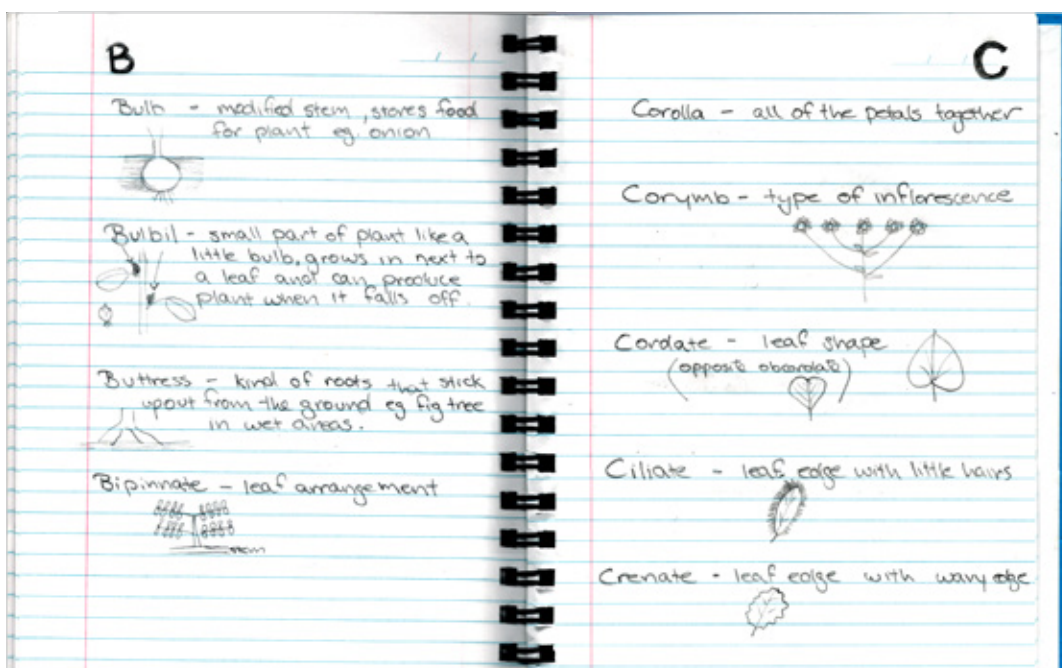 B
Bulb - modified stem, stores food
for plant eg. onion
Bulbil - small part of plant like a
little bulb, grows in next to
a leaf and can produce
plant when it falls off.
Buttress - kind of roots that stick
up out from the ground eg fig tree
in wet areas.
Bipinnate - leaf arrangement
stem
C
Corolla - all of the petals together
Corymb - type of inflorescence
Cordate - leaf shape
(opposite obcordate)
Ciliate - leaf edge with little hairs
Crenate - leaf edge with wavy edge